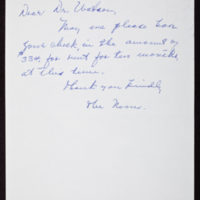 Dear Dr. Watson,
May we please have
your check, in the amount of
$334. for rent for two months,
at this time.
Thank you kindly
Mr.